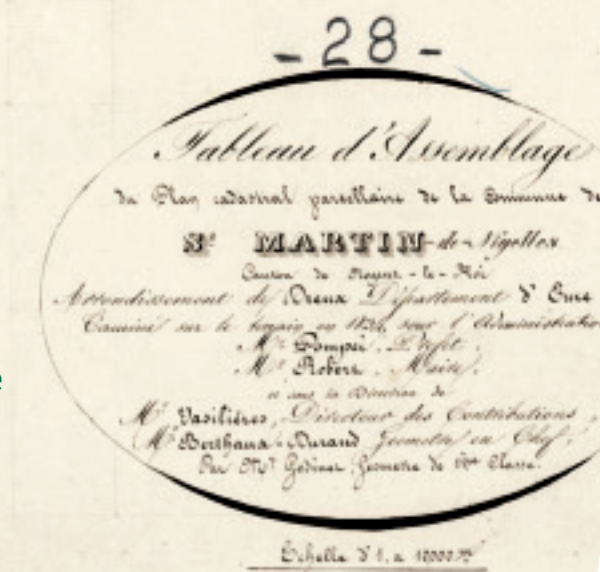 - 28 -
Tableau d'Assemblage
du Plan cadastral parcellaire de la Commune de
St MARTIN-de-Nigelles
Canton de Nogent-le-Roi
Arrondissement de Dreux Département d'Eure
Terminé sur le terrain en sous l'Administration
Mr Pompei, Préfet,
Mr Robert, Maire,
et sous la Direction de
Mr Vasilières, Directeur des Contributions,
Mr Durand Géomètre en Chef,
Par Mr Godinar, Géomètre de Classe.
Echelle d'1 a 10000